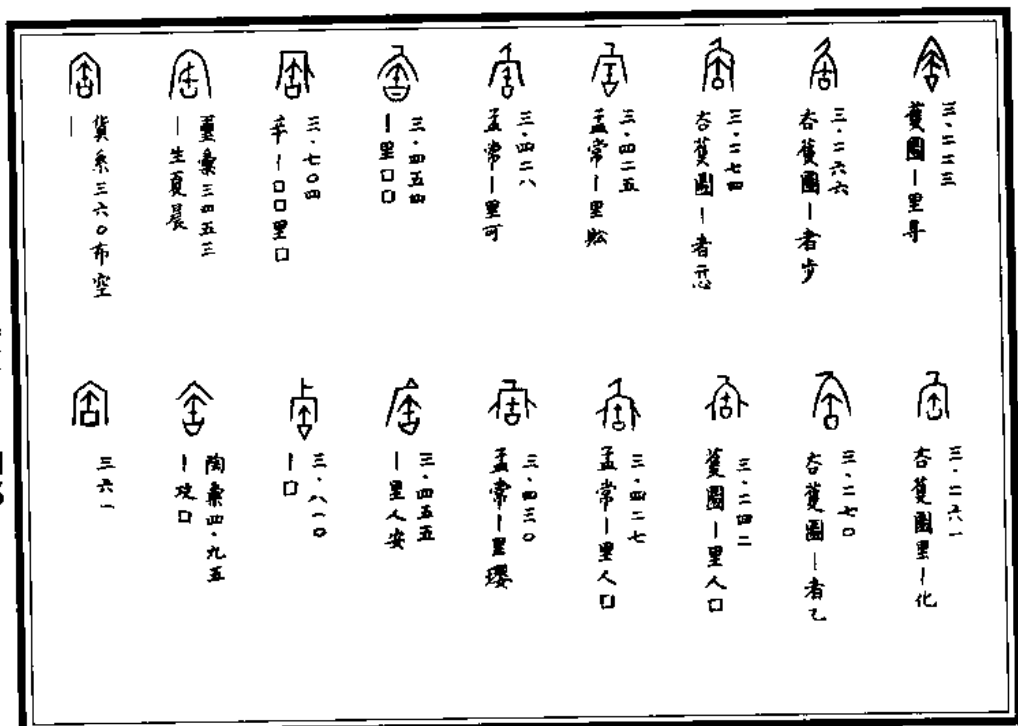 三·二二三
蒦圖丨里㝵
三·二六六
杏蒦圖丨者步
三·二七四
杏蒦圖丨者
三·四二五
孟常丨里
三·四二八
孟常丨里可
三·四五四
丨里口口
三·七〇四
辛丨口口里口
璽彙三四五三
丨生夏晨
貨系三六〇布空
丨
三·二六一
杏蒦圖里丨化
三·二七〇
杏蒦圖丨者乙
三·二四二
蒦圖丨里人口
三·四二七
孟常丨里人口
三·四三〇
孟常丨里瓔
三·四五五
丨里人安
三·八一〇
丨口
陶彙四·九五
丨攻口
三六一